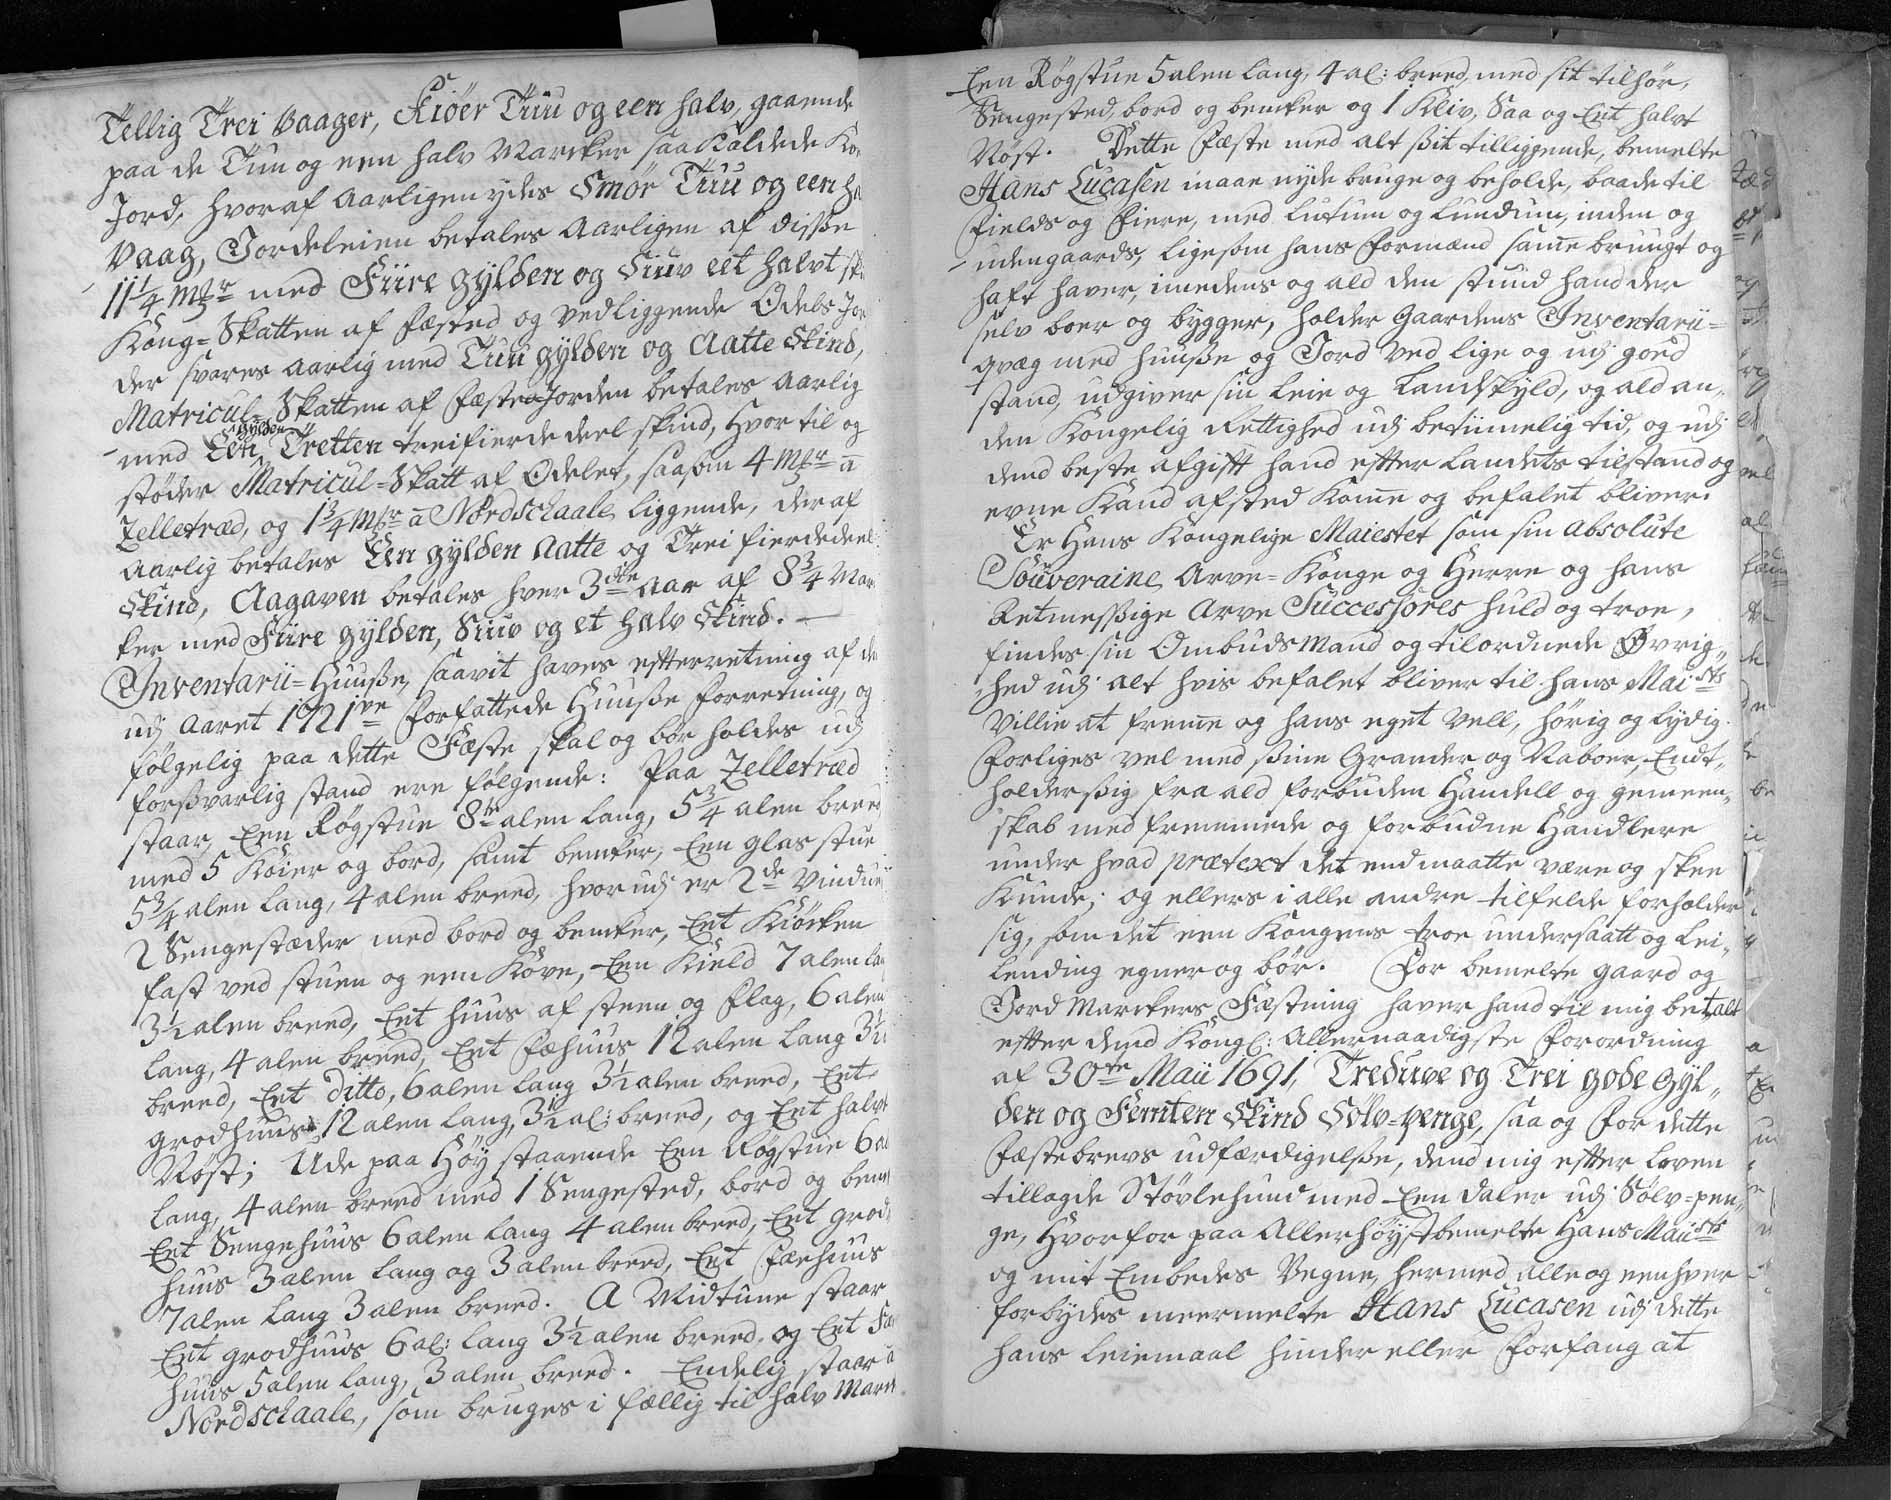 Tellig Trei Vaager, Fiöer Tuu og een halv, gaaende
paa de Tuu og een halv Marcker saa Kaldede Ko
Jord, hvoraf Aarligen ydes Smör Tuu og een ha
Vaag, Jordeleien betales Aarligen af disse
11 1/4 Mkr med Fiire gylden og Siuv eet halvt sk
Kong-Skatten af fæsted og vedliggende Odels Jor
der svares Aarlig med Tuu gylden og Aatte Skind,
Matricul-Skatten af Fæste Jorden betales Aarlig
med Een gylden Tretten treifierde deel skind, Hvor til og
støder Matricul-Skatt af Odelet, saasom 4 Mkr ā
Zelletræd, og 1 3/4 Mkr ā Nordschaale liggende, der af
Aarlig betales Een gylden Aatte og Trei fierdedeel
Skind, Aagaven betales hver 3die Aar af 8 3/4 Mar
ker med Fiire gylden, Siuv og et halv Skind. —
Inventarii-Huuse, saavit haves effterretning af de
udj Aaret 1721ve forfattede Huuse forretning, og
følgelig paa dette Fæste skal og bør holdes udj
forsvarlig stand ere følgende: Paa Zelletræd
staar, Een Røgstue 8te alen lang, 5 3/4 alen breed
med 5 Kòier og bord, samt bencker, Een glas stue
5 3/4 alen lang, 4 alen breed, hvorudj er 2de Vindue
2 Sengestæder med bord og bencker, Eet Kiöcken
fast ved stuen og een Köve, Een Kield 7 alen lang
3 1/2 alen breed, Eet huus af steen og flag, 6 alen
lang, 4 alen breed, Eet Fæhuus 12 alen lang 3 1/2
breed, Eet ditto, 6 alen lang 3 1/2 alen breed, Eet
grodhuus 12 alen lang, 3 1/2 al: breed, og Eet halvt
Nøst; Ude paa Höy staaende Een Røgstue 6 al
lang, 4 alen breed med 1 Sengested, bord og benc
Eet Sengehuus 6 alen lang 4 alen breed, Eet grod-
huus 3 alen lang og 3 alen breed, Eet Fæehuus
7 alen lang 3 alen breed. A Midtune staar
Eet grodhuus 6 al: lang 3 1/2 alen breed. og Eet Fæ
huus 5 alen lang, 3 alen breed. Endelig staar a
Nordschaale, som bruges i fællig til halv Marck
Een Røgstue 5 alen lang, 4 al: breed, med sit tilhør,
Sengested, bord og bencker og 1 Kliv, Saa og Eet halvt
Nøst. Dette Fæste med alt sit tilliggende, bemelte
Hans Lucasen maae nyde bruge og beholde, baade til
Fields og Fiere, med Lutum og Lundum, inden og
udengaards, ligesom hans Formænd same brugt og
haft haver, imedens og ald den stund hand der
selv boer og bygger, holder Gaardens Inventarii-
qvæg med huuse og Jord ved lige og udj goed
stand, udgiver sin leie og Landskyld, og ald an-
den Kongelig Rettighed udj betimelig tid, og udj
dend beste afgifft hand effter Landets tilstand og
evne Kand afsted Kome og befalet bliver.
Er Hans Kongelige Maiestet som sin Absolute
Souveraine Arve-Konge og Herre og hans
Retmessige Arve Successores huld og troe,
findes sin Ombuds Mand og tilordnede Øvrig-
hed udj alt hvis befalet bliver til hans Maists
Villie at freme og hans eget Vell, hørig og lydig.
Forliges vel med sine Grander og Naboer, Endt-
holder sig fra ald forbuden Handell og gemeen-
skab med fremmede og forbudne Handlere
under hvad prætext det end maatte være og skee
Kunde; og ellers i alle andre tilfelde forholder
sig, som det een Kongens troe undersaatt og Lei-
lending egner og bør. For bemelte gaard og
Jord Marckers Fæstning haver hand til mig betalt
effter dend Kongl: Allernaadigste Forordning
af 30te Maii 1691, Treduve og Trei gode Gyl-
den og Femten Skind Sölv-penge, saa og for dette
Fæstebrevs udfærdigelse, dend mig effter Loven
tillagde Støvlehund med Een Daler udj Sölv-pen-
ge, Hvorfor paa Allerhöystbemelte Hans Maiists
og mit Embedes Vegne, hermed alle og eenhver
forbydes meermelte Hans Lucasen udj dette
hans Leiemaal hinder eller Forfang at